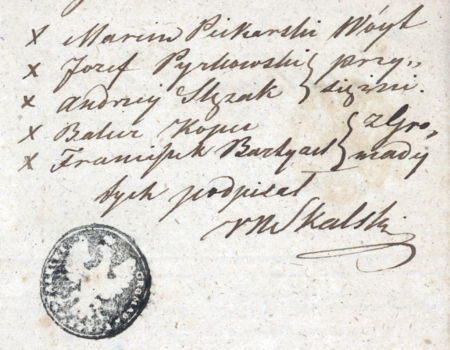 x Marcin Piekarski Wóyt
x Jozef Pyrkowski } przy„
x Andrzey Slęzak } sięzni.
x Balcer Kopec } z Gro„
x Franciszek Bartyzel } mady
tych podpisał
Skalski